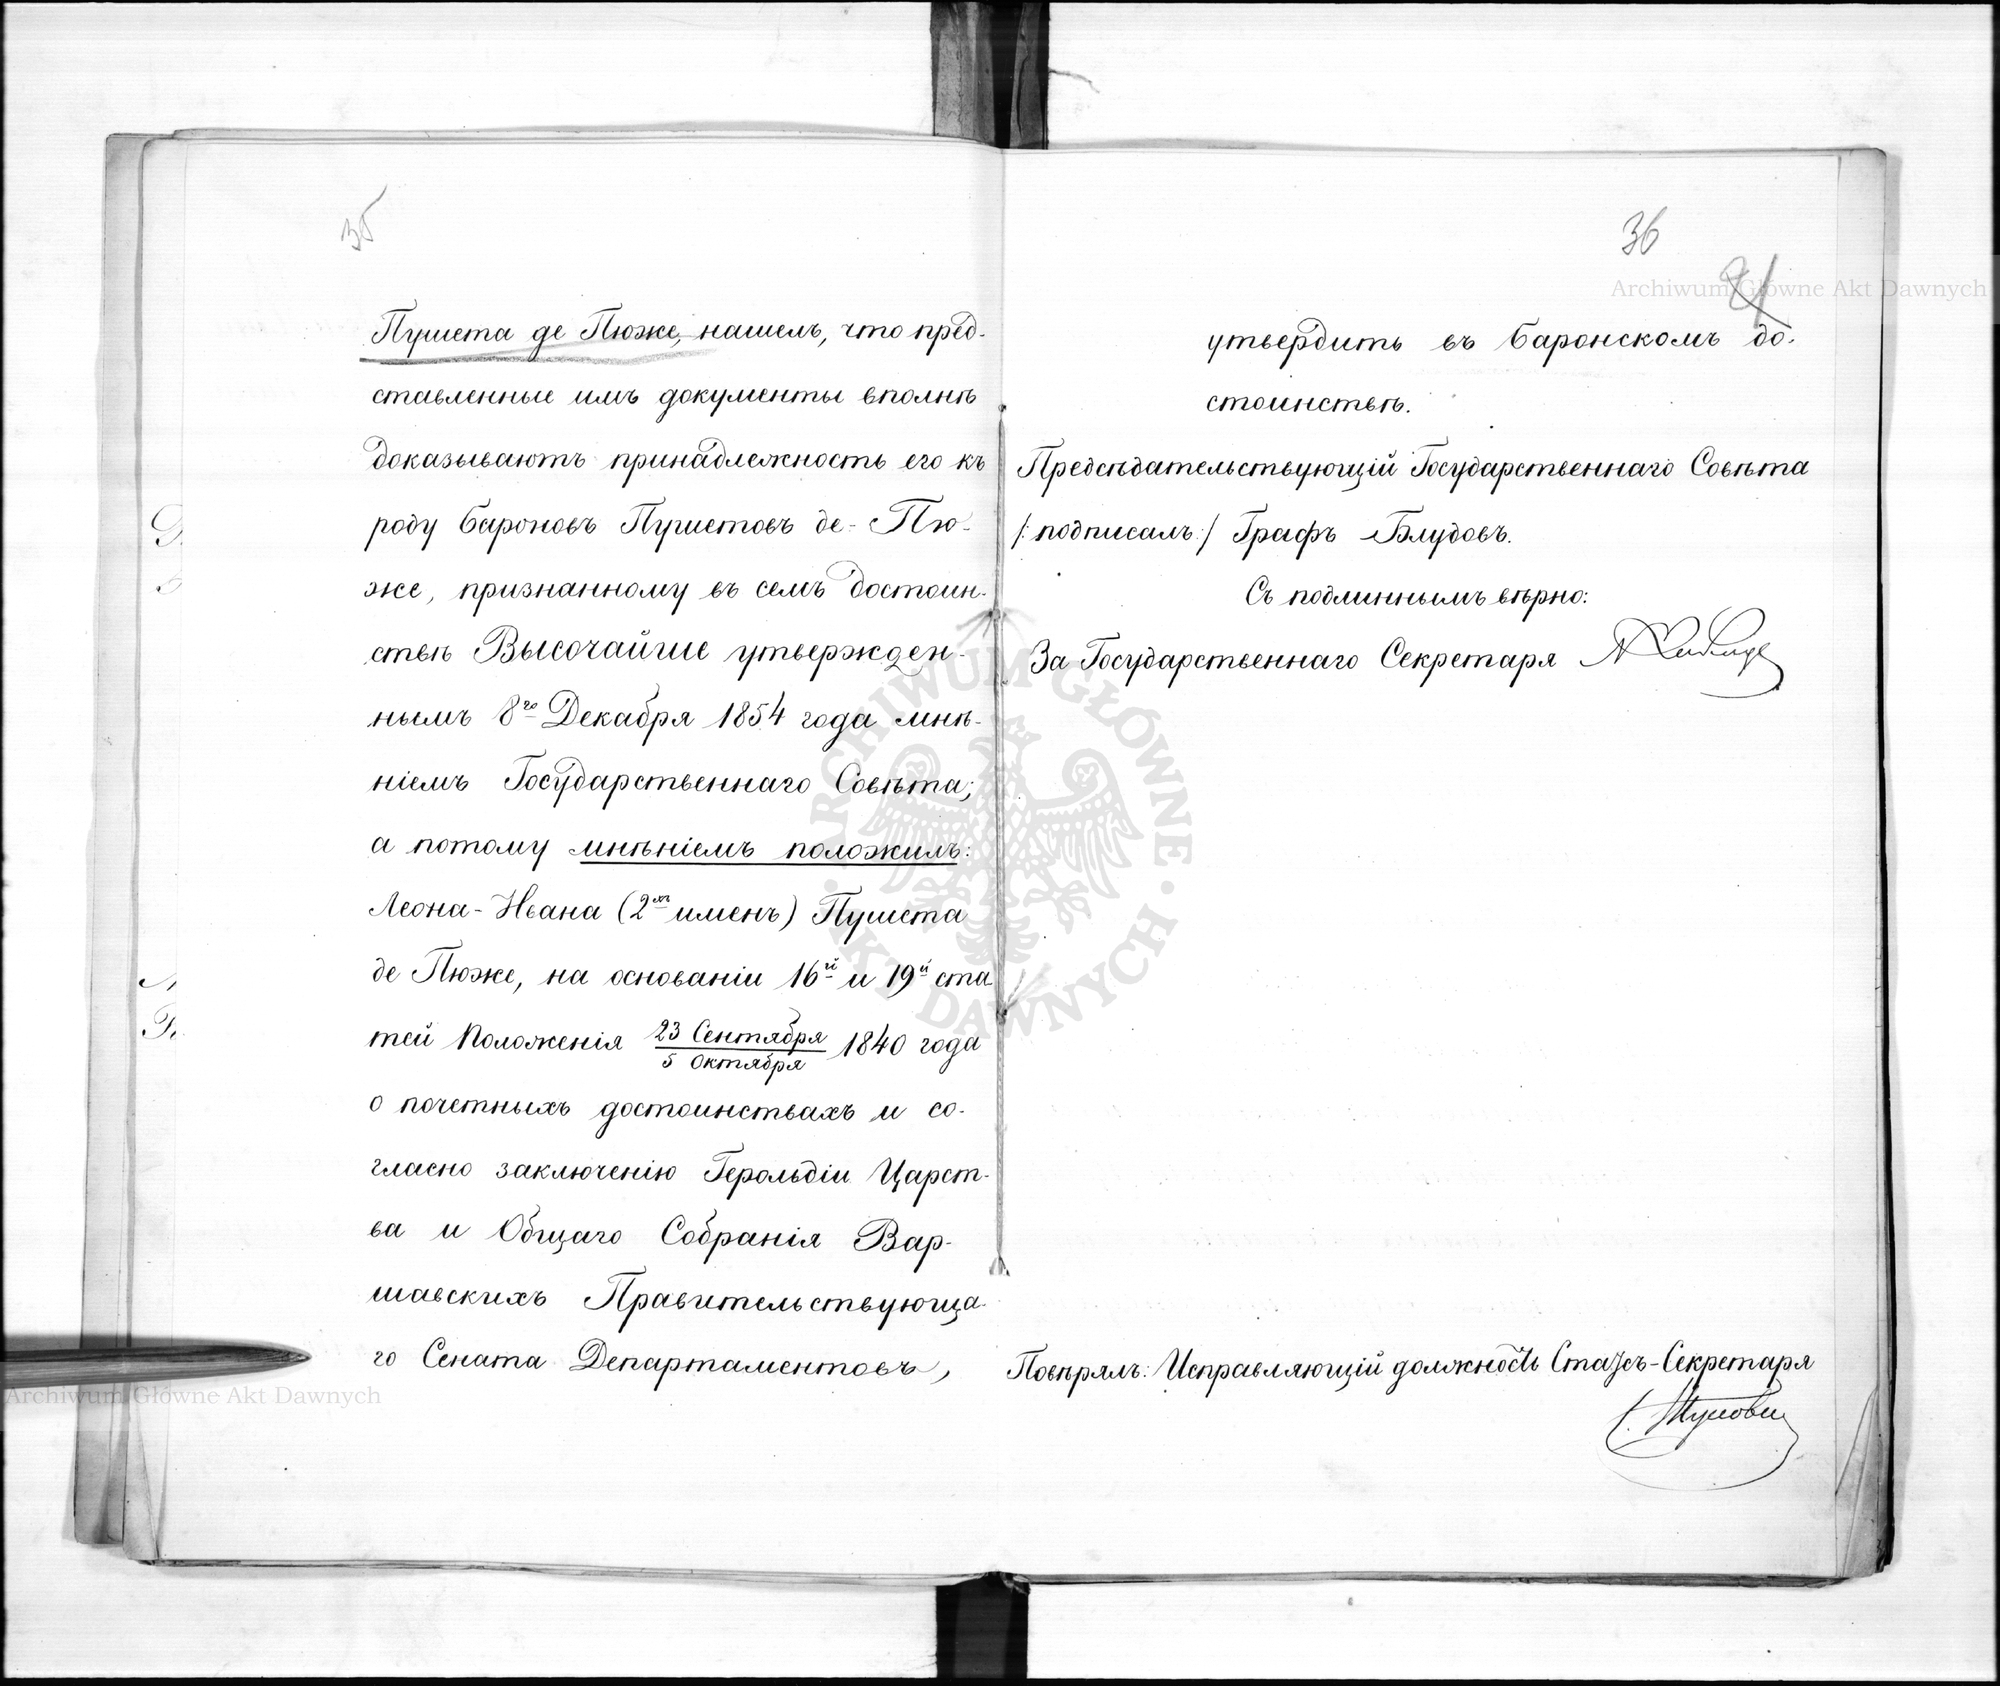 35
Пушета де Пюже, нашелъ, что пред-
ставленные имъ документы вполнѣ
доказываютъ принадлежность его къ
роду Бароновъ Пушетовъ де-Пю-
же, признанному въ семъ достоин-
ствѣ Высочайше утвержден-
нымъ 8го Декабря 1854 года мнѣ-
ніемъ Государственнаго Совѣта;
а потому мнѣніемъ положилъ:
Леона-Ивана (2хъ именъ) Пушета
де Пюже, на основаніи 16й и 19й ста
тей Положенія 23 Сентября / 5 Октября 1840 года
о почетныхъ достоинствахъ и со-
гласно заключенію Герольдіи Царст-
ва и Общаго Собранія Вар-
шавскихъ Правительствующа-
го Сената Департаментовъ,
36
утвердить въ Баронскомъ до-
стоинствѣ.
Предсѣдательствующій Государственнаго Совѣта
/:подписалъ:/ Графъ Блудовъ.
Съ подлиннымъ вѣрно:
За Государственнаго Секретаря
Повѣрялъ: Исправляющій должность Статсъ-Секретаря
Archiwum Główne Akt Dawnych
Archiwum Główne Akt Dawnych
ARCHIWUM GŁÓWNE AKT DAWNYCH